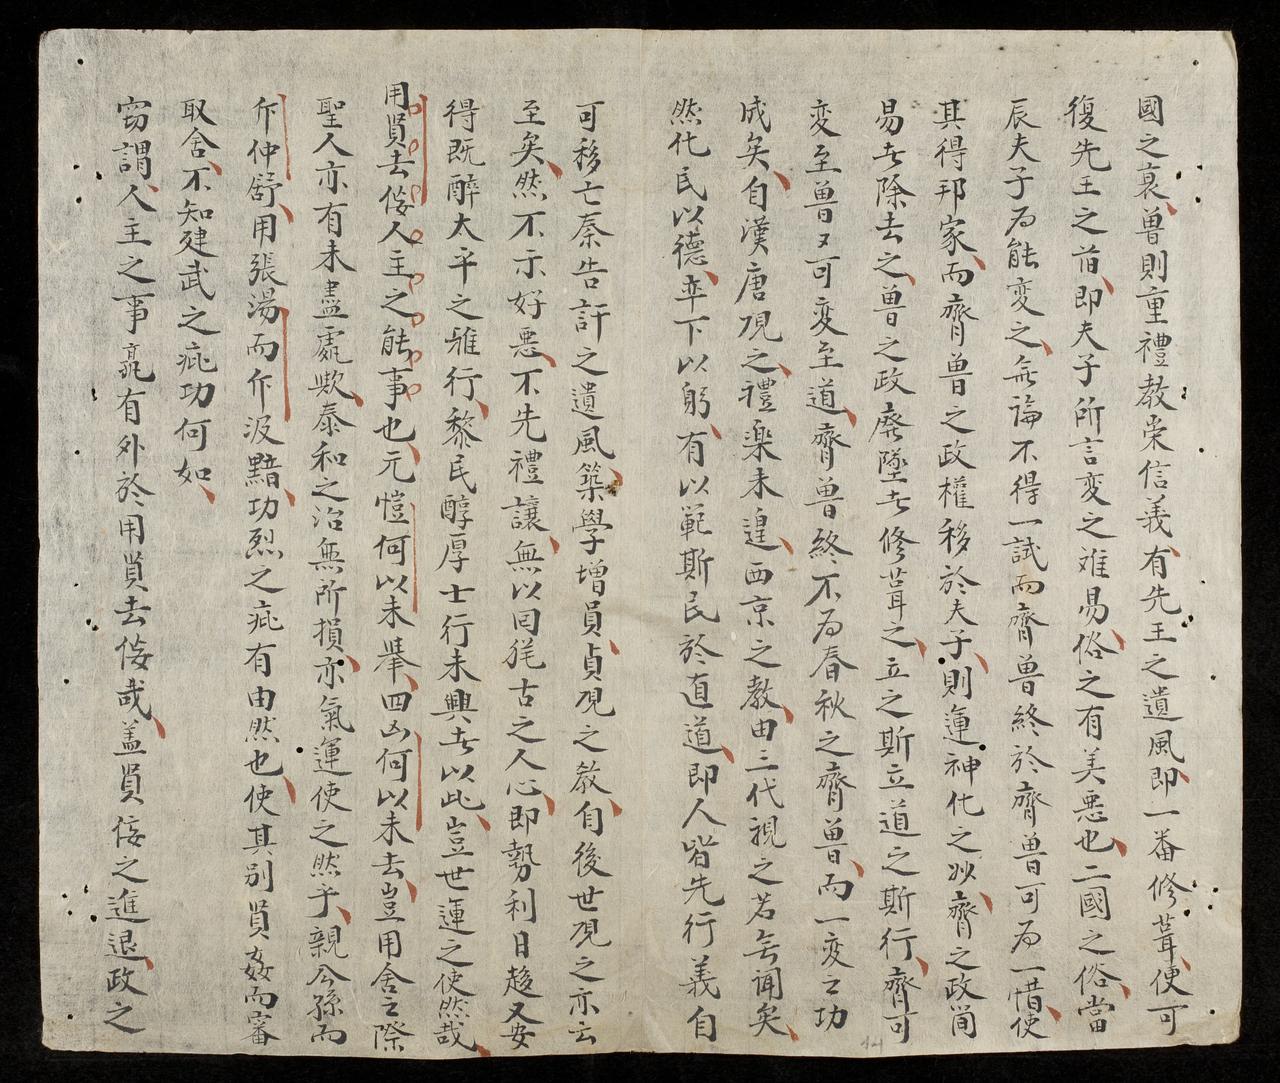 國之衰魯則重禮教崇信義有先王之遺風即一番修葺便可
復先王之旧即夫子所言変之难易俗之有美悪也二國之俗當
辰夫子為能変之無論不得一試而齊魯終於齊魯可為一惜使
其得邦家而齊魯之政權移於夫子則運神化之妙齊之政簡
易者除去之魯之政廃墜者修葺之立之斯立道之斯行齊可
変至魯又可変至道齊魯終不為春秋之齊魯而一変之功
成矣自漢唐現之禮楽未遑西京之教由三代視之若無聞矣
然化民以德率下以躬有以範斯民於直道即人皆先行義自
可移亡秦告訐之遺風築學増員貞观之教自後世現之亦云
至矣然不示好悪不先禮讓無以囘㲠古之人心即勢利日趍又安
得既醉大平之雅行黎民醇厚士行未興者以此豈世運之使然哉
用賢去倿人主之能事也元愷何以未舉四凶何以未去豈用舍之際
聖人亦有未盡處欤泰和之治無所損亦氣運使之然乎親公孫而
斥仲舒用張湯而斥汲黯功烈之疵有由然也使其別賢姦而審
取舍不知建武之疵功何如
窃謂人主之事孰有外於用賢去倿哉盖賢倿之進退政之